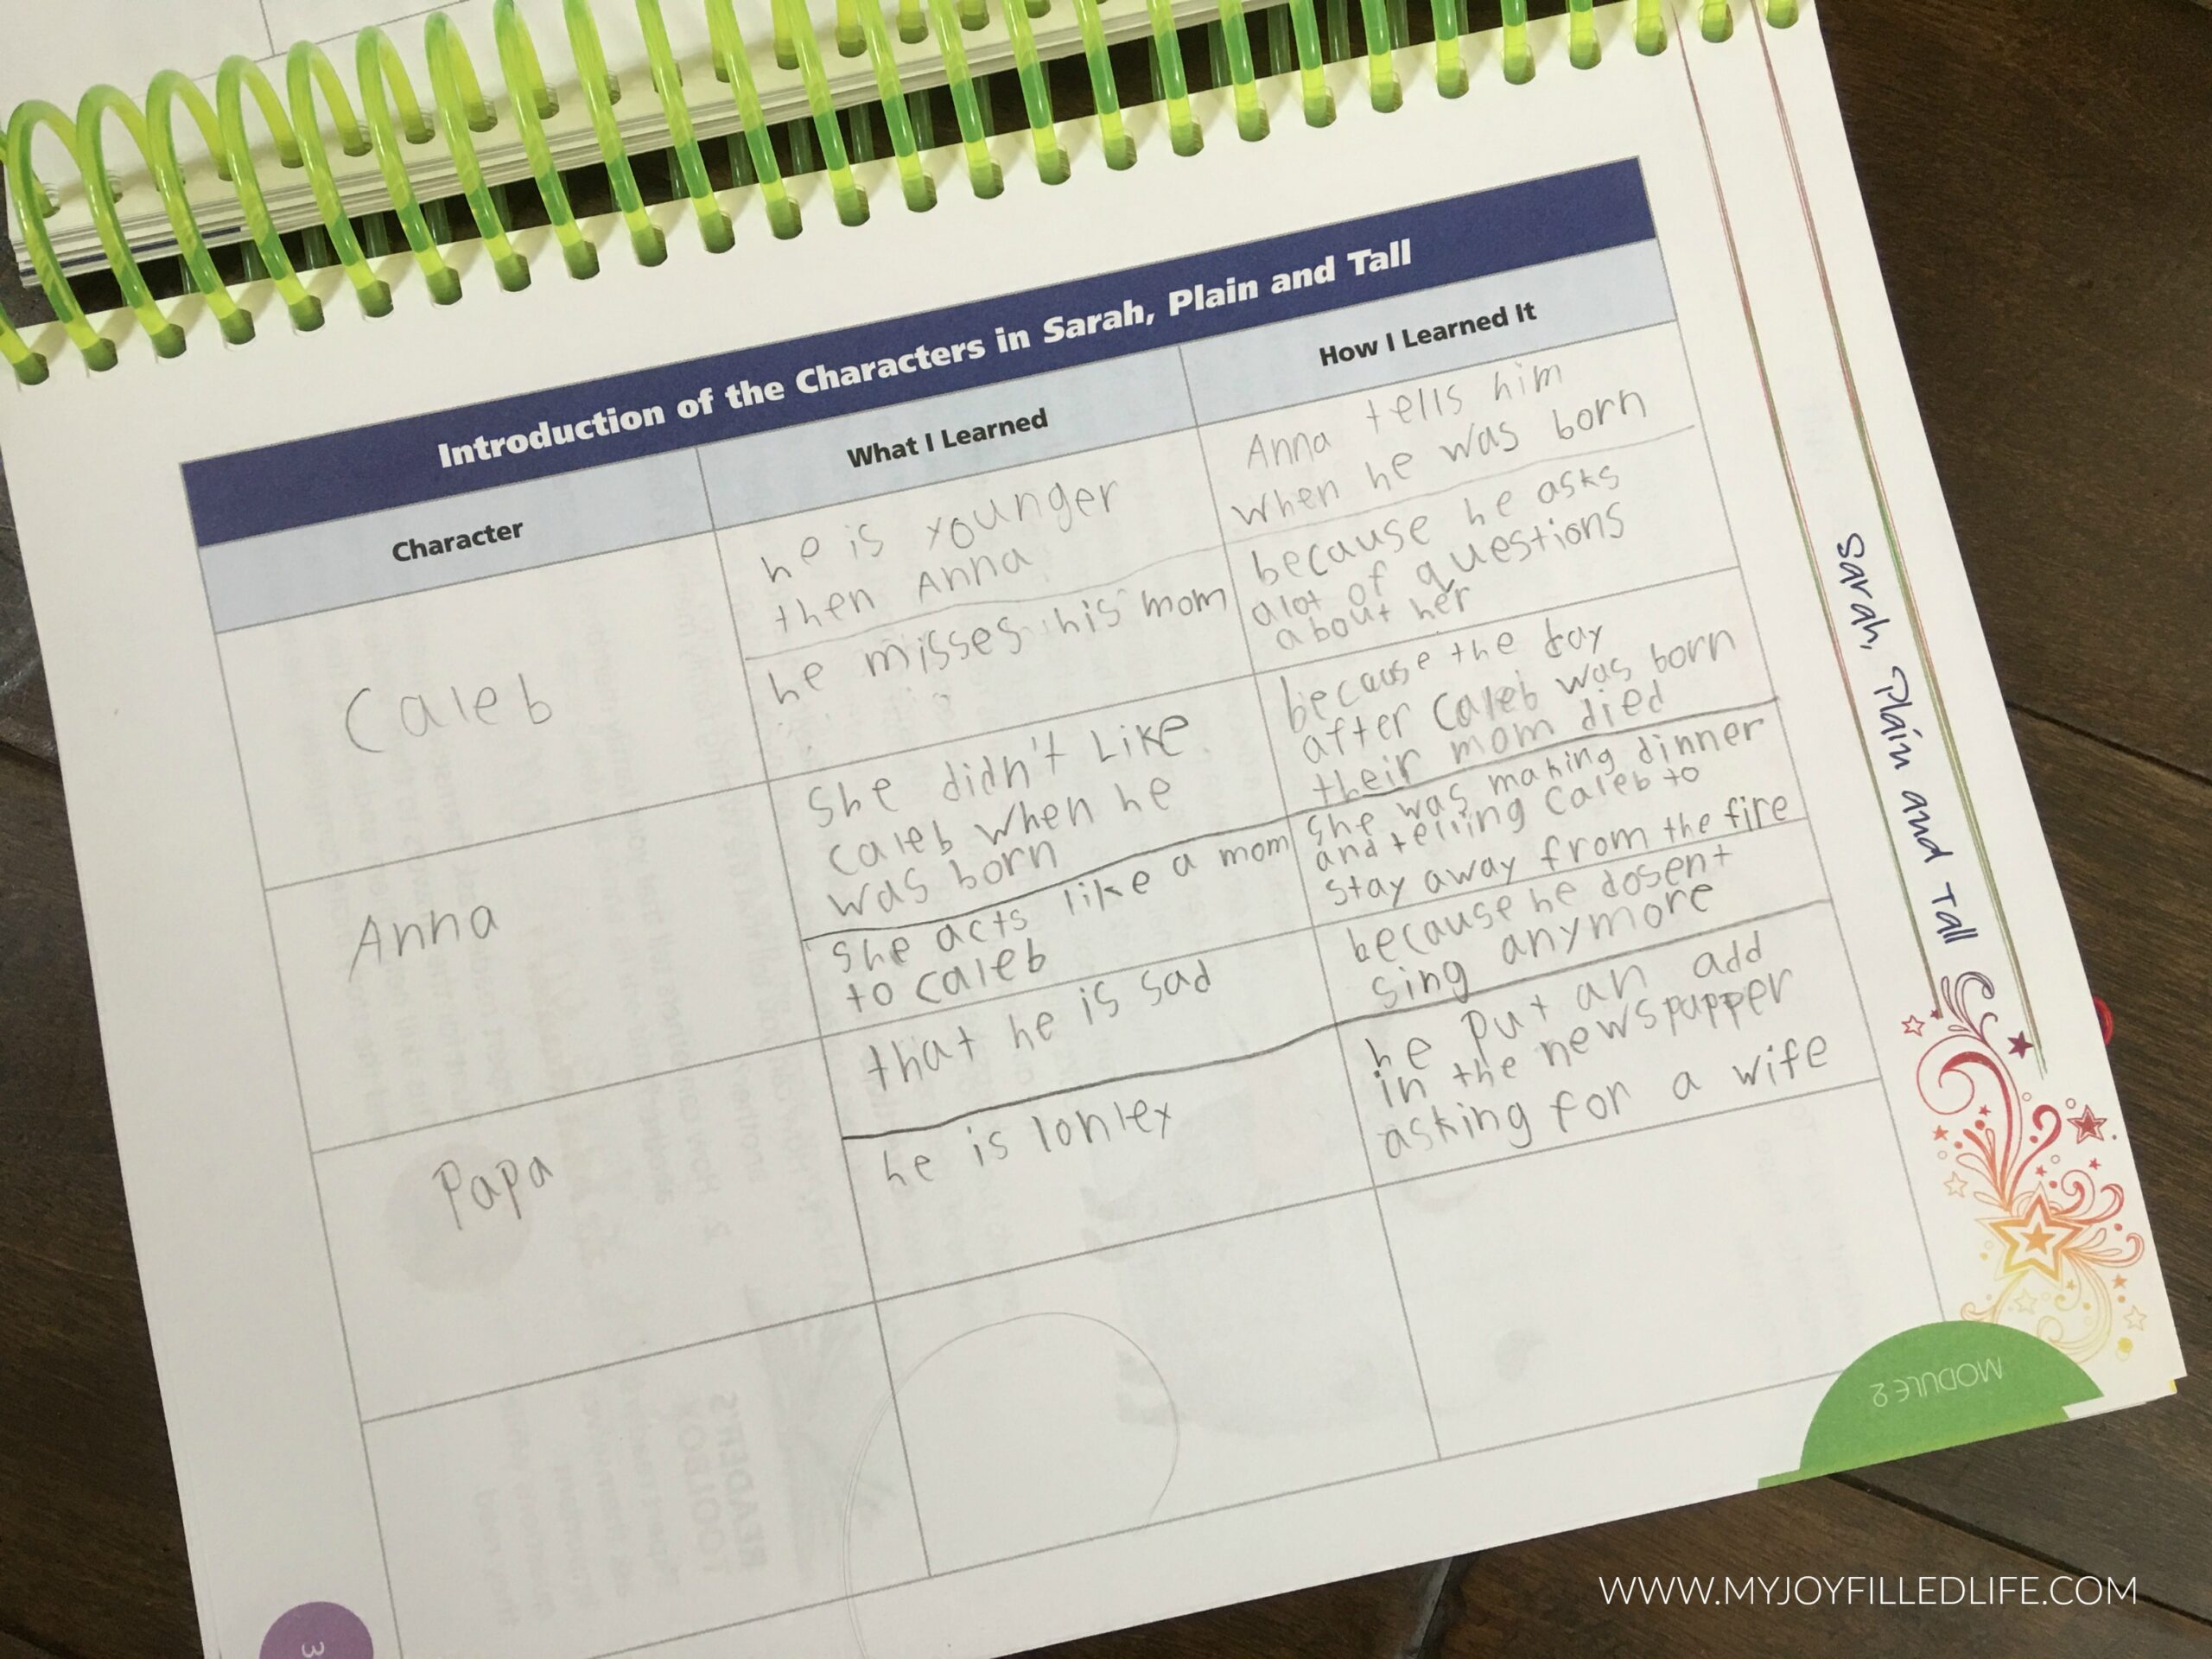 Introduction of the Characters in Sarah, Plain and Tall
Character
What I Learned
How I Learned It
Caleb
he is younger
then Anna
Anna tells him
when he was born
he misses his mom
because he asks
alot of questions
about her
Anna
She didn't Like
Caleb when he
was born
because the day
after Caleb was born
their mom died
she acts like a mom
to caleb
she was making dinner
and telling Caleb to
stay away from the fire
Papa
that he is sad
because he dosent
sing anymore
he is lonley
he put an add
in the newspapper
asking for a wife
Sarah, Plain and Tall
MODULE 2
3
READER'S
TOOLBOX
WWW.MYJOYFILLEDLIFE.COM